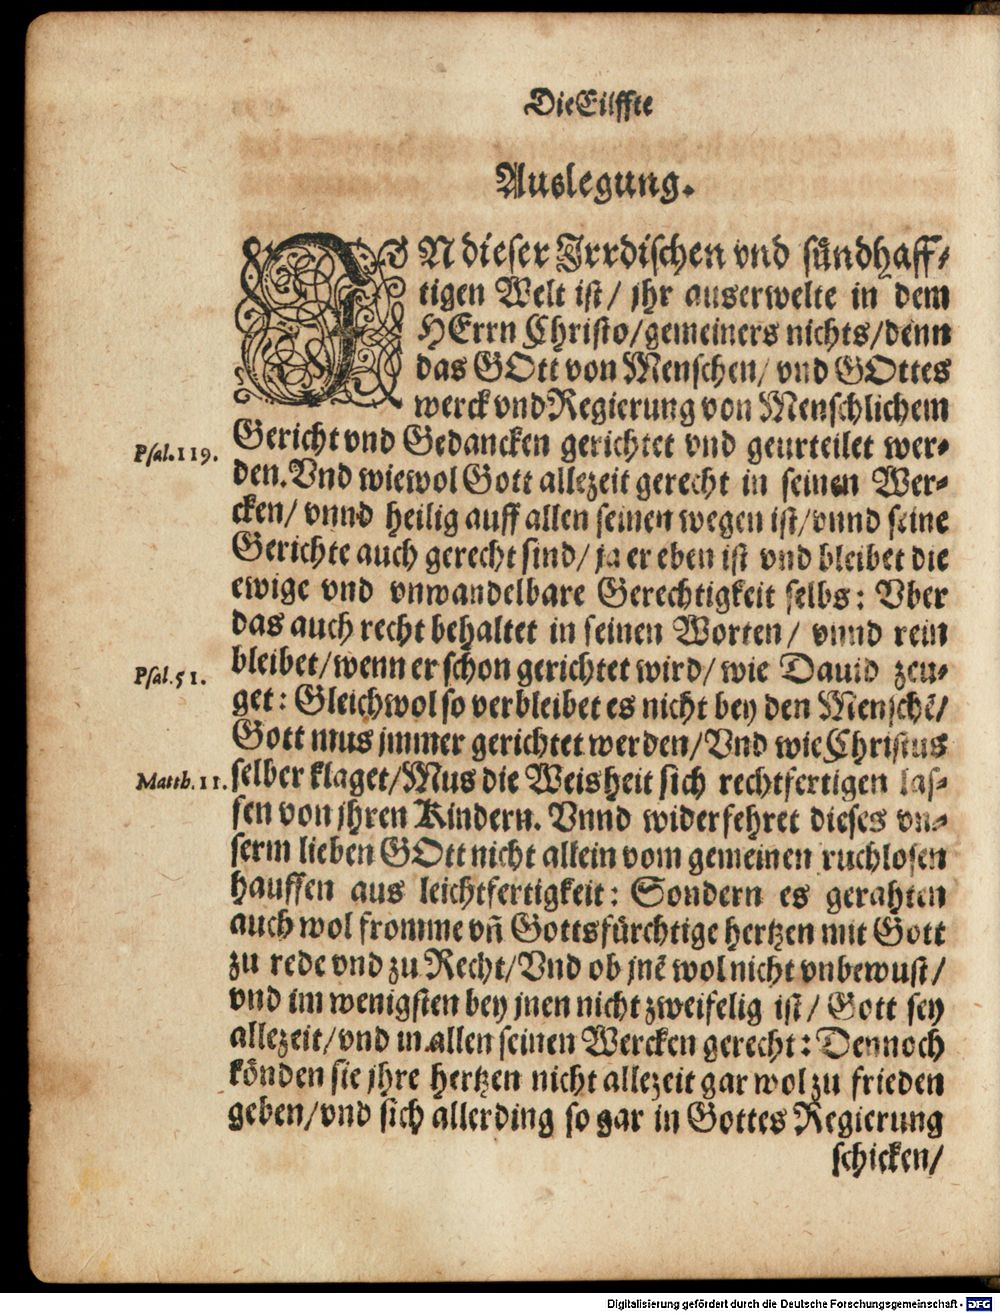 Die Eilffte
Auslegung.
IN dieser Irrdischen vnd sündhaff⸗
tigen Welt ist / jhr auserwelte in dem
HErrn Christo / gemeiners nichts / denn
das GOtt von Menschen / vnd GOttes
werck vnd Regierung von Menschlichem
Psal. 119.
Gericht vnd Gedancken gerichtet vnd geurteilet wer⸗
den. Vnd wiewol Gott allezeit gerecht in seinen Wer⸗
cken / vnnd heilig auff allen seinen wegen ist / vnnd seine
Gerichte auch gerecht sind / ja er eben ist vnd bleibet die
ewige vnd vnwandelbare Gerechtigkeit selbs: Vber
das auch recht behaltet in seinen Worten / vnnd rein
Psal. 51.
bleibet / wenn er schon gerichtet wird / wie Dauid zeu⸗
get: Gleichwol so verbleibet es nicht bey den Menschẽ /
Gott mus jmmer gerichtet werden / Vnd wie Christus
Matth. 11.
selber klaget / Mus die Weisheit sich rechtfertigen las⸗
sen von jhren Kindern. Vnnd widerfehret dieses vn⸗
serm lieben GOtt nicht allein vom gemeinen ruchlosen
hauffen aus leichtfertigkeit: Sondern es gerahten
auch wol fromme vñ Gottsfürchtige hertzen mit Gott
zu rede vnd zu Recht / Vnd ob jnẽ wol nicht vnbewust /
vnd im wenigsten bey jnen nicht zweifelig ist / Gott sey
allezeit / vnd in allen seinen Wercken gerecht: Dennoch
könden sie jhre hertzen nicht allezeit gar wol zu frieden
geben / vnd sich allerding so gar in Gottes Regierung
schicken /
Digitalisierung gefördert durch die Deutsche Forschungsgemeinschaft - DFG